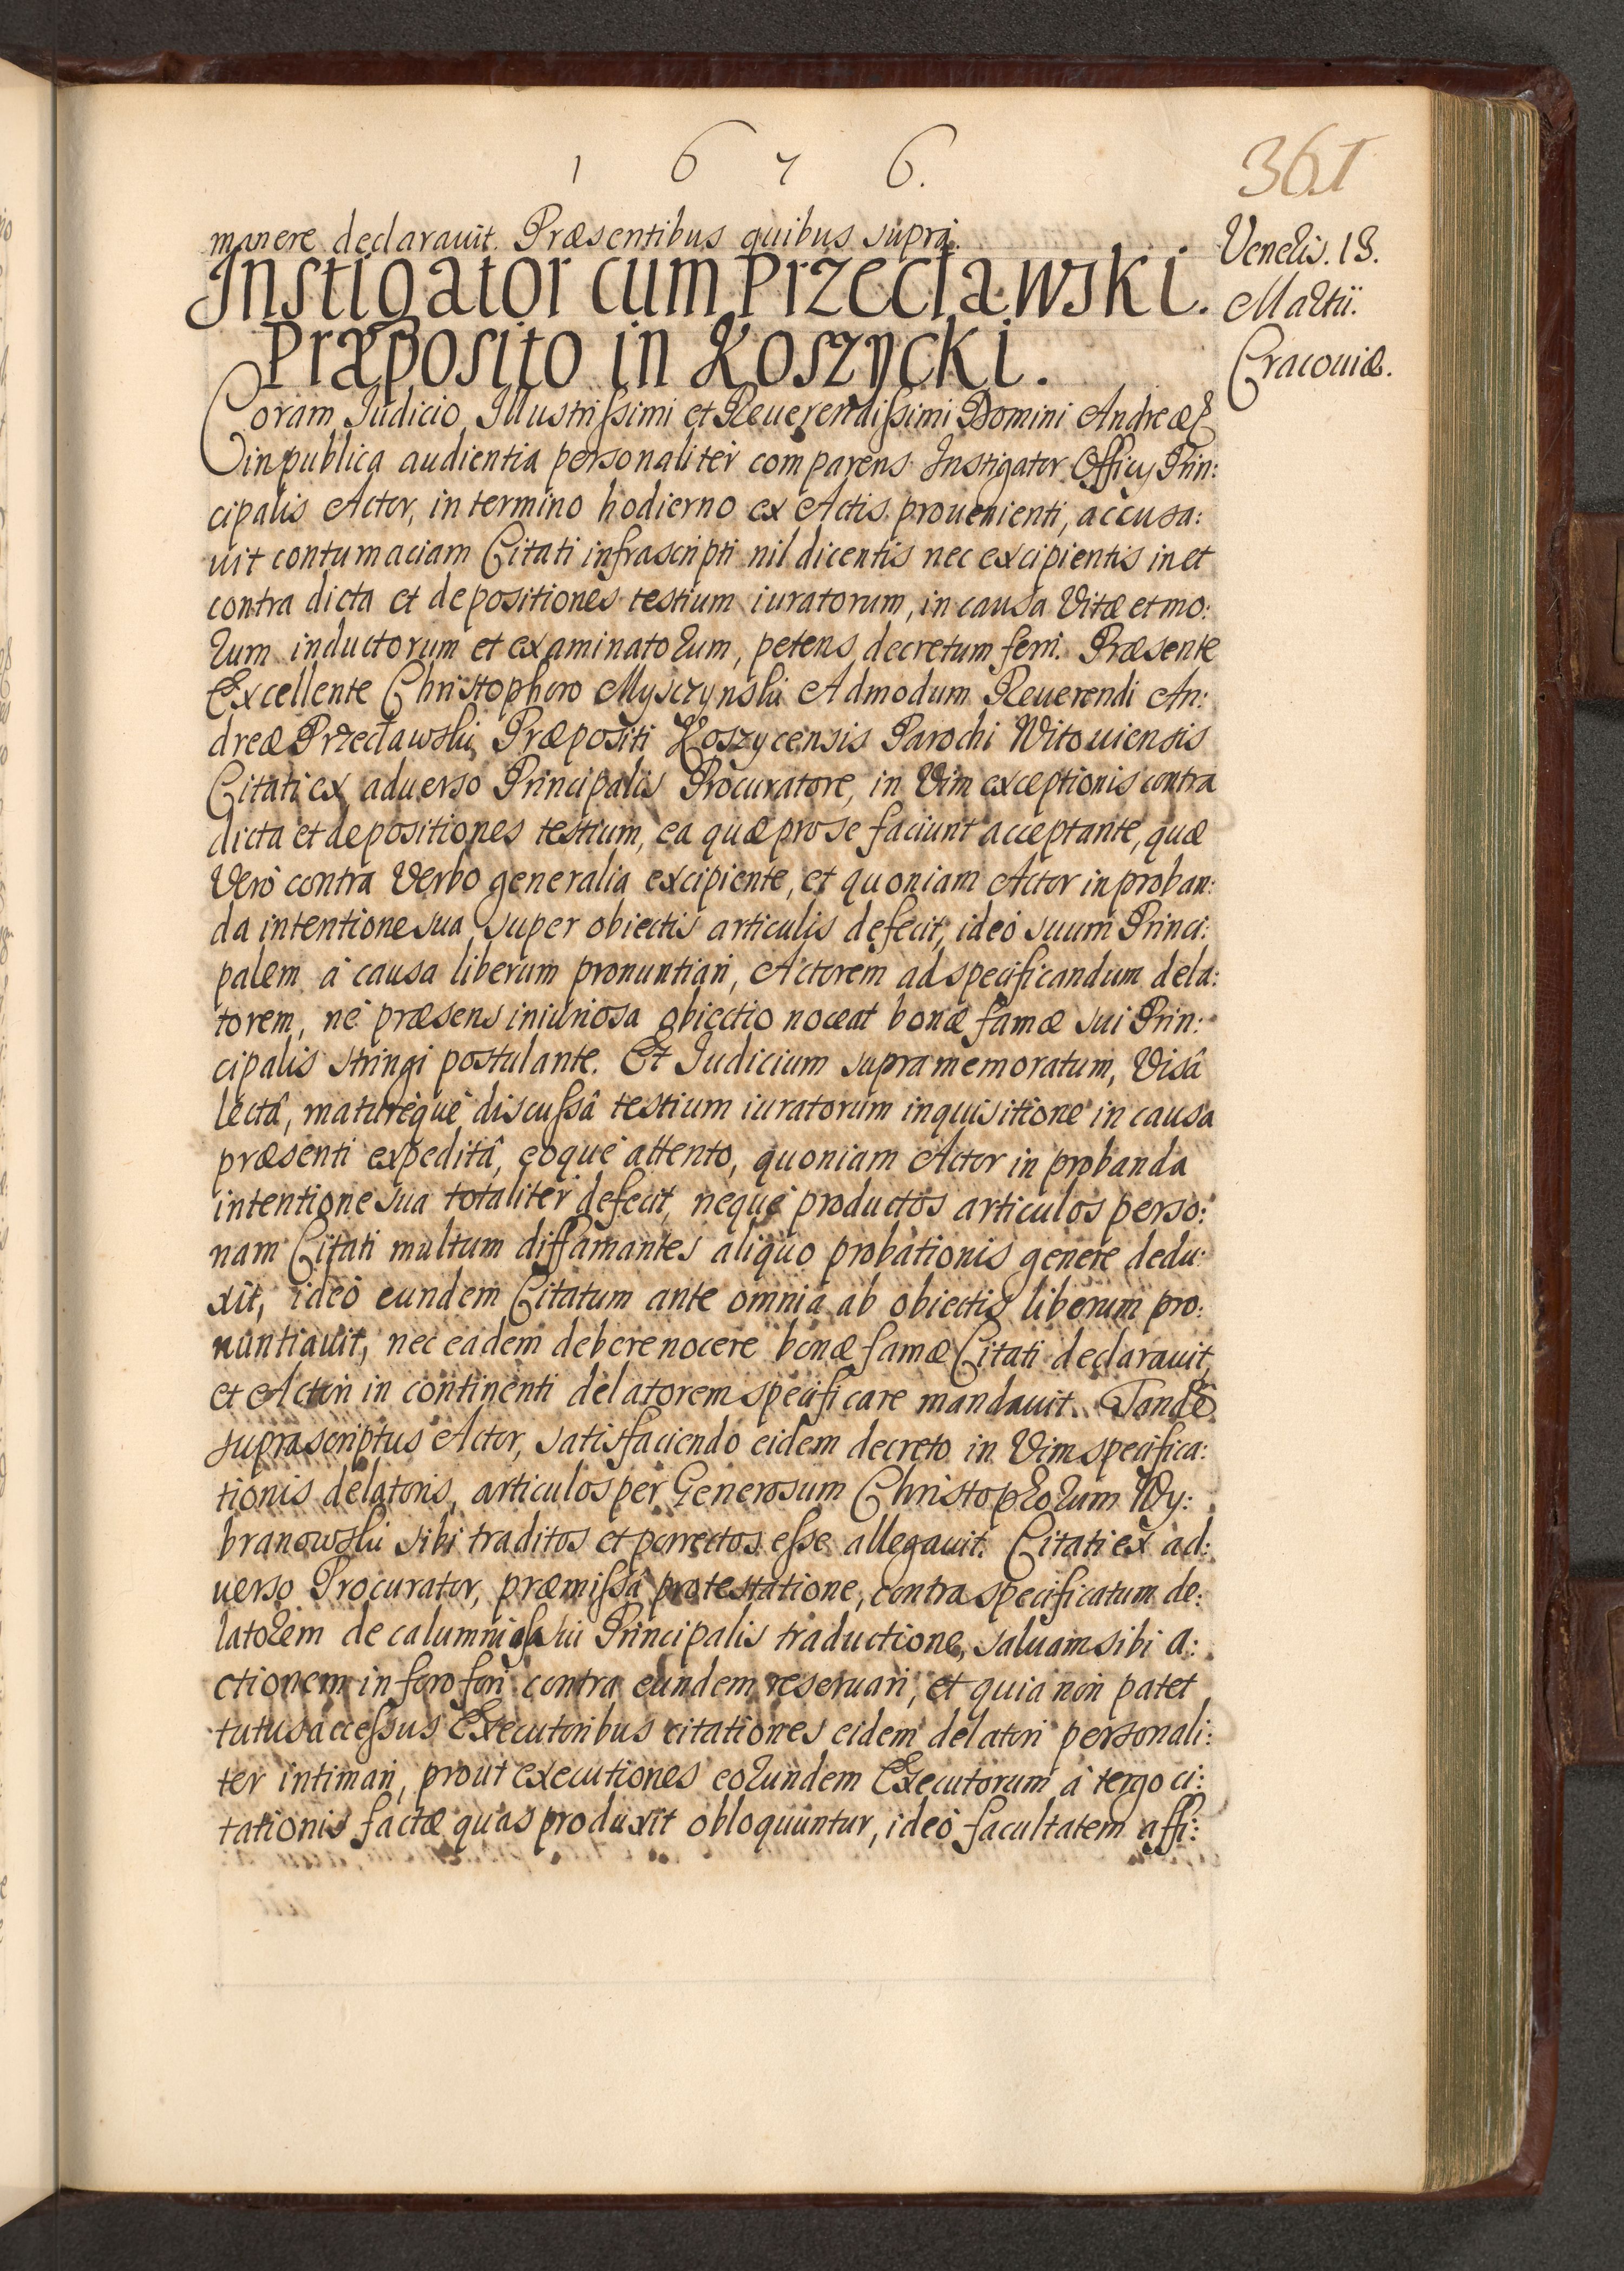 1 6 7 6.
361
manere declarauit. Præsentibus quibus supra.
Instigator cum Przecławski.
Præposito in Koszycki.
Venetis. 13.
Martii.
Cracouiæ.
Coram Iudicio Illustrissimi et Reuerendissimi Domini Andreæ
in publica audientia personaliter comparens Instigator Officij Prin:
cipalis Actor, in termino hodierno ex Actis prouenienti, accusa:
uit contumaciam Citati infrascripti nil dicentis nec excipientis in et
contra dicta et depositiones testium iuratorum, in causa Vitæ et mo:
rum inductorum et examinatorum, petens decretum ferri. Præsente
Excellente Christophoro Myszczynski Admodum Reuerendi An:
dreæ Przecławski, Præpositi Koszycensis Parochi Witouiensis
Citati ex aduerso Principalis Procuratore, in Vim exceptionis contra
dicta et depositiones testium, ea quæ pro se faciunt acceptante, quæ
Verò contra Verbo generalia excipiente, et quoniam Actor in proban:
da intentione sua super obiectis articulis defecit, ideò suum Princi:
palem à causa liberum pronuntiari, Actorem ad specificandum dela:
torem, ne præsens iniuriosa obiectio noceat bonæ famæ sui Prin:
cipalis stringi postulante. Et Iudicium supramemoratum, Visâ
lectâ, maturèque discussâ testium iuratorum inquisitione in causa
præsenti expeditâ, eoque attento, quoniam Actor in probanda
intentione sua totaliter defecit, neque productos articulos perso:
nam Citati multum diffamantes aliquo probationis genere dedu:
xit, ideò eundem Citatum ante omnia ab obiectis liberum pro:
nuntiauit, nec eadem debere nocere bonæ famæ Citati declarauit,
et Actori in continenti delatorem specificare mandauit. Tandẽ
suprascriptus Actor, satisfaciendo eidem decreto in Vim specifica:
tionis delatoris, articulos per Generosum Christophorum Wy:
branowski sibi traditos et porrectos esse allegauit. Citati ex ad:
uerso Procurator, præmissâ protestatione, contra specificatum de:
latorem de calumniosa sui Principalis traductione, saluam sibi a:
ctionem in foro fori contra eundem reseruari, et quia non patet
tutus accessus Executoribus citationes eidem delatori personali:
ter intimari, prout executiones eorundem Executorum à tergo ci:
tationis factæ quas produxit obloquuntur, ideò facultatem affi: